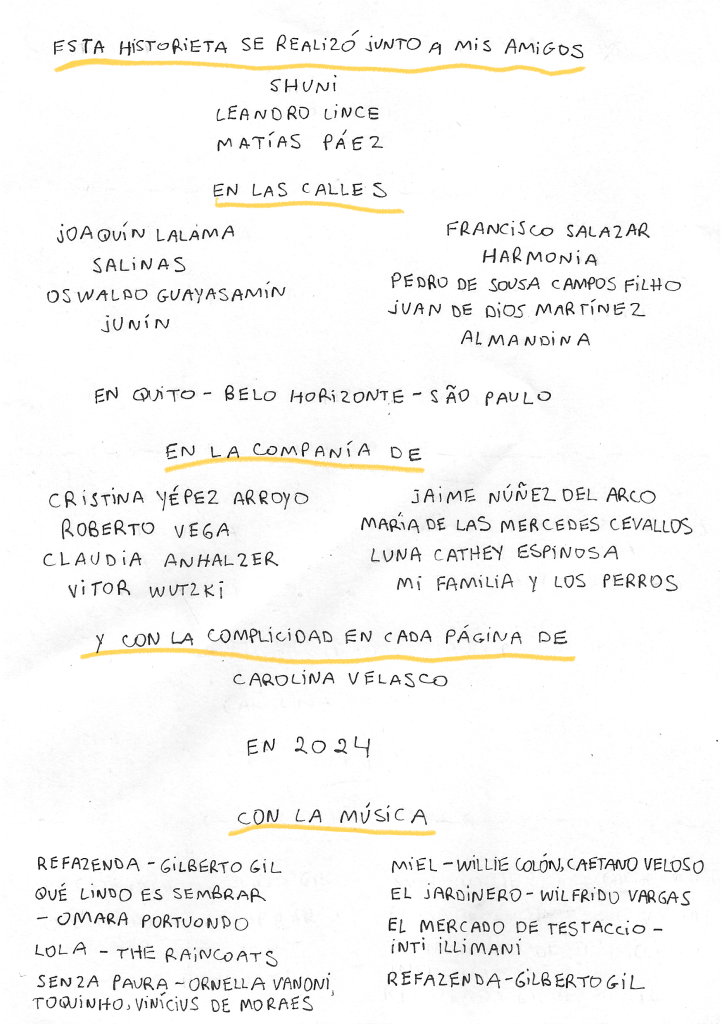 ESTA HISTORIETA SE REALIZÓ JUNTO A MIS AMIGOS
SHUNI
LEANDRO LINCE
MATÍAS PÁEZ
EN LAS CALLES
JOAQUÍN LALAMA
SALINAS
OSWALDO GUAYASAMÍN
JUNÍN
FRANCISCO SALAZAR
HARMONIA
PEDRO DE SOUSA CAMPOS FILHO
JUAN DE DIOS MARTÍNEZ
ALMANDINA
EN QUITO - BELO HORIZONTE - SÃO PAULO
EN LA COMPANÍA DE
CRISTINA YÉPEZ ARROYO
ROBERTO VEGA
CLAUDIA ANHALZER
VITOR WUTZKI
JAIME NÚÑEZ DEL ARCO
MARÍA DE LAS MERCEDES CEVALLOS
LUNA CATHEY ESPINOSA
MI FAMILIA Y LOS PERROS
Y CON LA COMPLICIDAD EN CADA PÁGINA DE
CAROLINA VELASCO
EN 2024
CON LA MÚSICA
REFAZENDA - GILBERTO GIL
QUÉ LINDO ES SEMBRAR
- OMARA PORTUONDO
LOLA - THE RAINCOATS
SENZA PAURA - ORNELLA VANONI,
TOQUINHO, VINÍCIUS DE MORAES
MIEL - WILLIE COLÓN, CAETANO VELOSO
EL JARDINERO - WILFRIDO VARGAS
EL MERCADO DE TESTACCIO -
INTI ILLIMANI
REFAZENDA - GILBERTO GIL